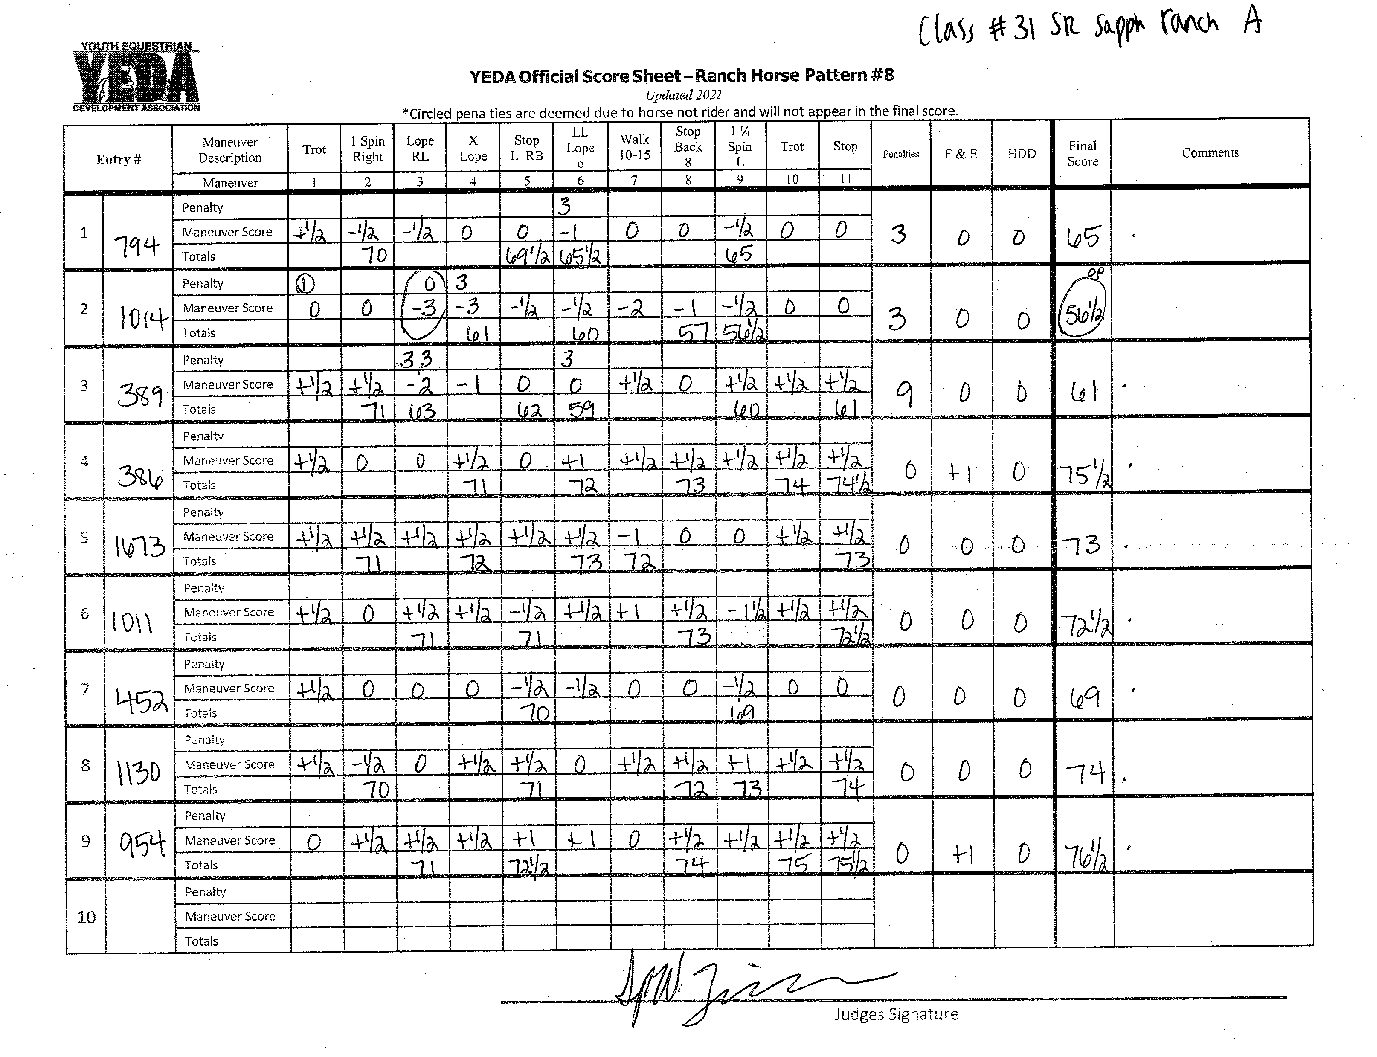 Class #31 SR Sapph ranch A
YOUTH EQUESTRIAN
YEDA
DEVELOPMENT ASSOCIATION
YEDA Official Score Sheet – Ranch Horse Pattern #8
Updated 2022
*Circled penalties are deemed due to horse not rider and will not appear in the final score.
Entry # Maneuver Description Trot 1 Spin Right Lope RL X Lope Stop L RB LL Lope o Walk 10-15 Stop Back 8 1 ¼ Spin L Trot Stop Penalties F & E HDD Final Score Comments
Maneuver 1 2 3 4 5 6 7 8 9 10 11
Penalty 3
1 794 Maneuver Score +1/2 -1/2 -1/2 0 0 -1 0 0 -1/2 0 0 3 0 0 65
Totals 70 69 1/2 65 1/2 65
Penalty 1 0 3 OP
2 1014 Maneuver Score 0 0 -3 -3 -1/2 -1/2 -2 -1 -1/2 0 0 3 0 0 56 1/2
Totals 61 60 57 56 1/2
Penalty 3 3 3
3 389 Maneuver Score +1/2 +1/2 -2 -1 0 0 +1/2 0 +1/2 +1/2 +1/2 9 0 0 61
Totals 71 63 62 59 60 61
Penalty
4 386 Maneuver Score +1/2 0 0 +1/2 0 +1 +1/2 +1/2 +1/2 +1/2 +1/2 0 +1 0 75 1/2
Totals 71 72 73 74 74 1/2
Penalty
5 1673 Maneuver Score +1/2 +1/2 +1/2 +1/2 +1/2 +1/2 -1 0 0 +1/2 +1/2 0 0 0 73
Totals 71 72 73 72 73
Penalty
6 1011 Maneuver Score +1/2 0 +1/2 +1/2 -1/2 +1/2 +1 +1/2 -1 1/2 +1/2 +1/2 0 0 0 72 1/2
Totals 71 71 73 72 1/2
Penalty
7 452 Maneuver Score +1/2 0 0 0 -1/2 -1/2 0 0 -1/2 0 0 0 0 0 69
Totals 70 69
Penalty
8 1130 Maneuver Score +1/2 -1/2 0 +1/2 +1/2 0 +1/2 +1/2 +1 +1/2 +1/2 0 0 0 74
Totals 70 71 72 73 74
Penalty
9 954 Maneuver Score 0 +1/2 +1/2 +1/2 +1 +1 0 +1/2 +1/2 +1/2 +1/2 0 +1 0 76 1/2
Totals 71 72 1/2 74 75 75 1/2
Penalty
10 Maneuver Score
Totals
Judges Signature